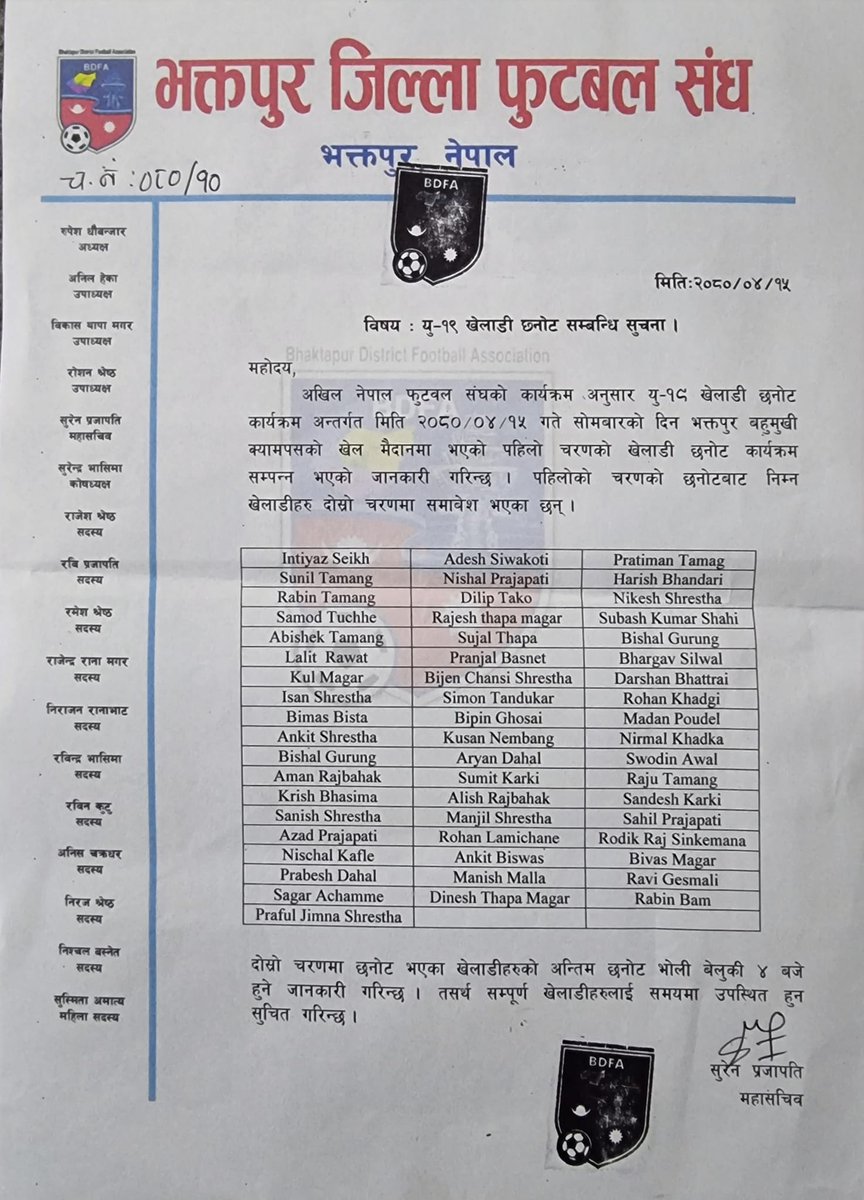 Bhaktapur District Football Association
BDFA
भक्तपुर जिल्ला फुटबल संघ
भक्तपुर नेपाल
च.नं :०८०/१०
BDFA
रुपेश धौबन्जार
अध्यक्ष
अनिल हेका
उपाध्यक्ष
विकास थापा मगर
उपाध्यक्ष
रोशन श्रेष्ठ
उपाध्यक्ष
सुरेन प्रजापति
महासचिव
सुरेन्द्र भासिमा
कोषध्यक्ष
राजेश श्रेष्ठ
सदस्य
रबि प्रजापति
सदस्य
रमेश श्रेष्ठ
सदस्य
राजेन्द्र राना मगर
सदस्य
निराजन रानाभाट
सदस्य
रविन्द्र भासिमा
सदस्य
रबिन कुटु
सदस्य
अनिस चक्रधर
सदस्य
निरज श्रेष्ठ
सदस्य
निश्चल बस्नेत
सदस्य
सुस्मिता अमात्य
महिला सदस्य
मिति:२०८०/०४/१५
विषय : यु-१९ खेलाडी छनोट सम्बन्धि सुचना ।
Bhaktapur District Football Association
BDFA
महोदय,
अखिल नेपाल फुटवल संघको कार्यक्रम अनुसार यु-१९ खेलाडी छनोट
कार्यक्रम अन्तर्गत मिति २०८०/०४/१५ गते सोमबारको दिन भक्तपुर बहुमुखी
क्यामपसको खेल मैदानमा भएको पहिलो चरणको खेलाडी छनोट कार्यक्रम
सम्पन्न भएको जानकारी गरिन्छ । पहिलोको चरणको छनोटबाट निम्न
खेलाडीहरु दोस्रो चरणमा समावेश भएका छन् ।
Intiyaz Seikh Adesh Siwakoti Pratiman Tamag
Sunil Tamang Nishal Prajapati Harish Bhandari
Rabin Tamang Dilip Tako Nikesh Shrestha
Samod Tuchhe Rajesh thapa magar Subash Kumar Shahi
Abishek Tamang Sujal Thapa Bishal Gurung
Lalit Rawat Pranjal Basnet Bhargav Silwal
Kul Magar Bijen Chansi Shrestha Darshan Bhattrai
Isan Shrestha Simon Tandukar Rohan Khadgi
Bimas Bista Bipin Ghosai Madan Poudel
Ankit Shrestha Kusan Nembang Nirmal Khadka
Bishal Gurung Aryan Dahal Swodin Awal
Aman Rajbahak Sumit Karki Raju Tamang
Krish Bhasima Alish Rajbahak Sandesh Karki
Sanish Shrestha Manjil Shrestha Sahil Prajapati
Azad Prajapati Rohan Lamichane Rodik Raj Sinkemana
Nischal Kafle Ankit Biswas Bivas Magar
Prabesh Dahal Manish Malla Ravi Gesmali
Sagar Achamme Dinesh Thapa Magar Rabin Bam
Praful Jimna Shrestha
दोस्रो चरणमा छनोट भएका खेलाडीहरुको अन्तिम छनोट भोली बेलुकी ४ बजे
हुने जानकारी गरिन्छ । तसर्थ सम्पूर्ण खेलाडीहरुलाई समयमा उपस्थित हुन
सुचित गरिन्छ ।
सुरेन प्रजापति
महासचिव
BDFA